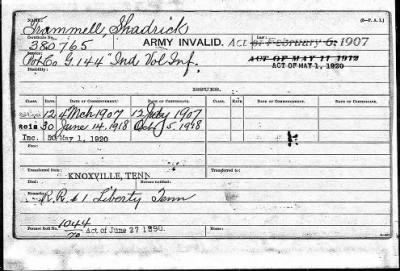 (3-F. A. 1.)
Trammell, Shadrick
Certificate No. Law:
380765 ARMY INVALID. Act of February 6, 1907
Pvt Co G. 144" Ind Vol Inf. ACT OF MAY 11 1912
ACT OF MAY 1, 1920
Disability:
ISSUES.
CLASS. DATE OF COMMENCEMENT. DATE OF CERTIFICATE. CLASS. DATE OF COMMENCEMENT. DATE OF CERTIFICATE.
12 4" Mch 1907 12 July 1907
Reis 30 June 14, 1918 Oct 5, 1918
Inc. 50 May 1, 1920
Transferred from
KNOXVILLE, TENN
Remarks:
R.R. #1 Liberty Tenn
1044
Former Roll No. Act of June 27 1890.